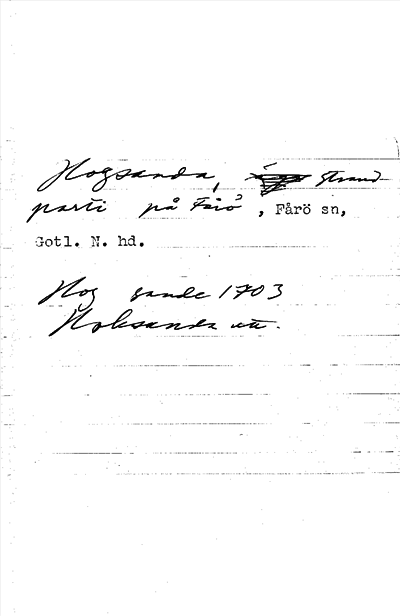 Hogsanda, strand-
parti på Fårö, Fårö sn,
Gotl. N. hd.
Hog sande 1703
Hoksanda